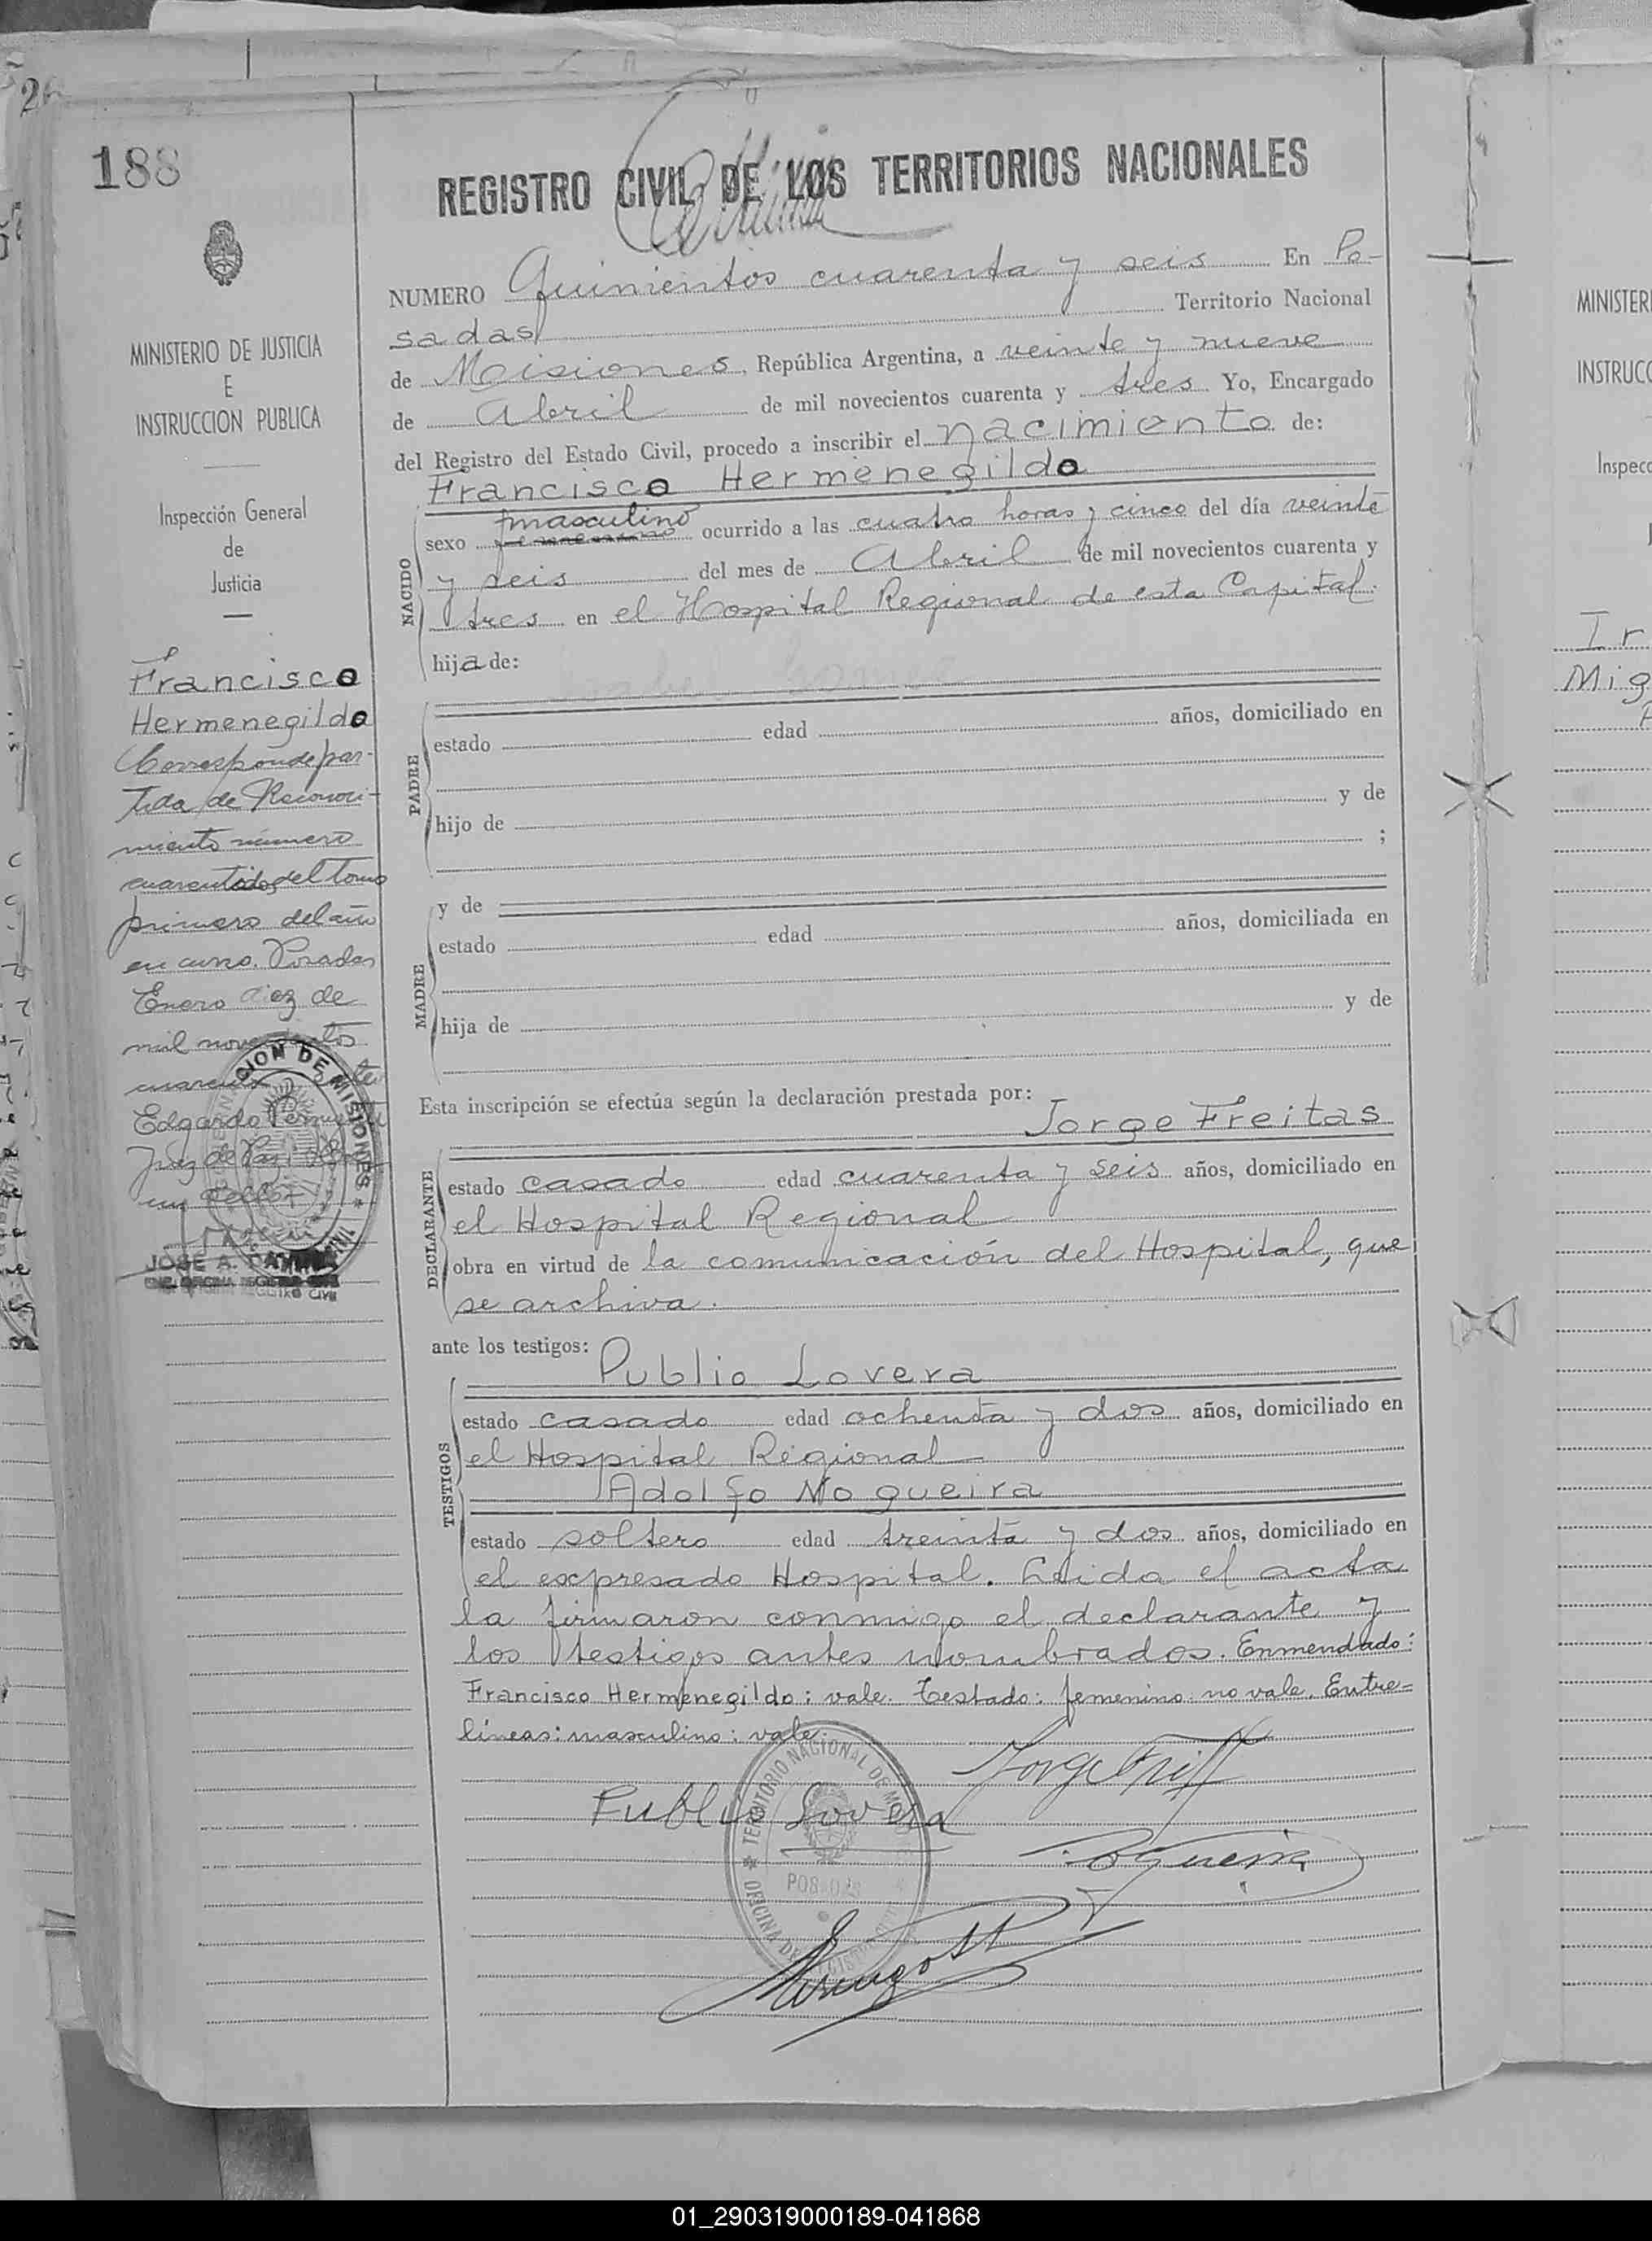 188
REGISTRO CIVIL DE LOS TERRITORIOS NACIONALES
MINISTERIO DE JUSTICIA
E
INSTRUCCION PUBLICA
Inspección General
de
Justicia
Francisco
Hermenegildo
Corresponde par-
tida de Reconoci-
miento número
cuarentidos del tomo
primero del año
en curso. Posadas
Enero diez de
mil novecientos
Edgardo
Juez de Paz
un sello
JOSE A.
ENC. OFICINA REGISTRO CIVIL
NUMERO Quinientos cuarenta y seis En Po-
sadas Territorio Nacional
de Misiones, República Argentina, a veinte y nueve
de Abril de mil novecientos cuarenta y tres Yo, Encargado
del Registro del Estado Civil, procedo a inscribir el nacimiento de:
Francisco Hermenegildo
NACIDO
masculino
sexo femenino ocurrido a las cuatro horas y cinco del día veinte
y seis del mes de Abril de mil novecientos cuarenta y
tres en el Hospital Regional de esta Capital.
hija de:
PADRE
estado edad años, domiciliado en
hijo de y de
;
y de
MADRE
estado edad años, domiciliada en
hija de y de
Esta inscripción se efectúa según la declaración prestada por:
Jorge Freitas
DECLARANTE
estado casado edad cuarenta y seis años, domiciliado en
el Hospital Regional
obra en virtud de la comunicación del Hospital, que
se archiva.
ante los testigos:
Publio Lovera
TESTIGOS
estado casado edad ochenta y dos años, domiciliado en
el Hospital Regional
Adolfo Nogueira
estado soltero edad treinta y dos años, domiciliado en
el expresado Hospital. Leida el acta
la firmaron conmigo el declarante y
los testigos antes nombrados. Enmendado:
Francisco Hermenegildo: vale. Testado: femenino: no vale. Entre=
líneas: masculino: vale.
TERRITORIO NACIONAL DE
POSADAS
OFICINA DE
Publio Lovera
MINISTER
INSTRUCC
Inspecc
Ir
Mig
01_290319000189-041868